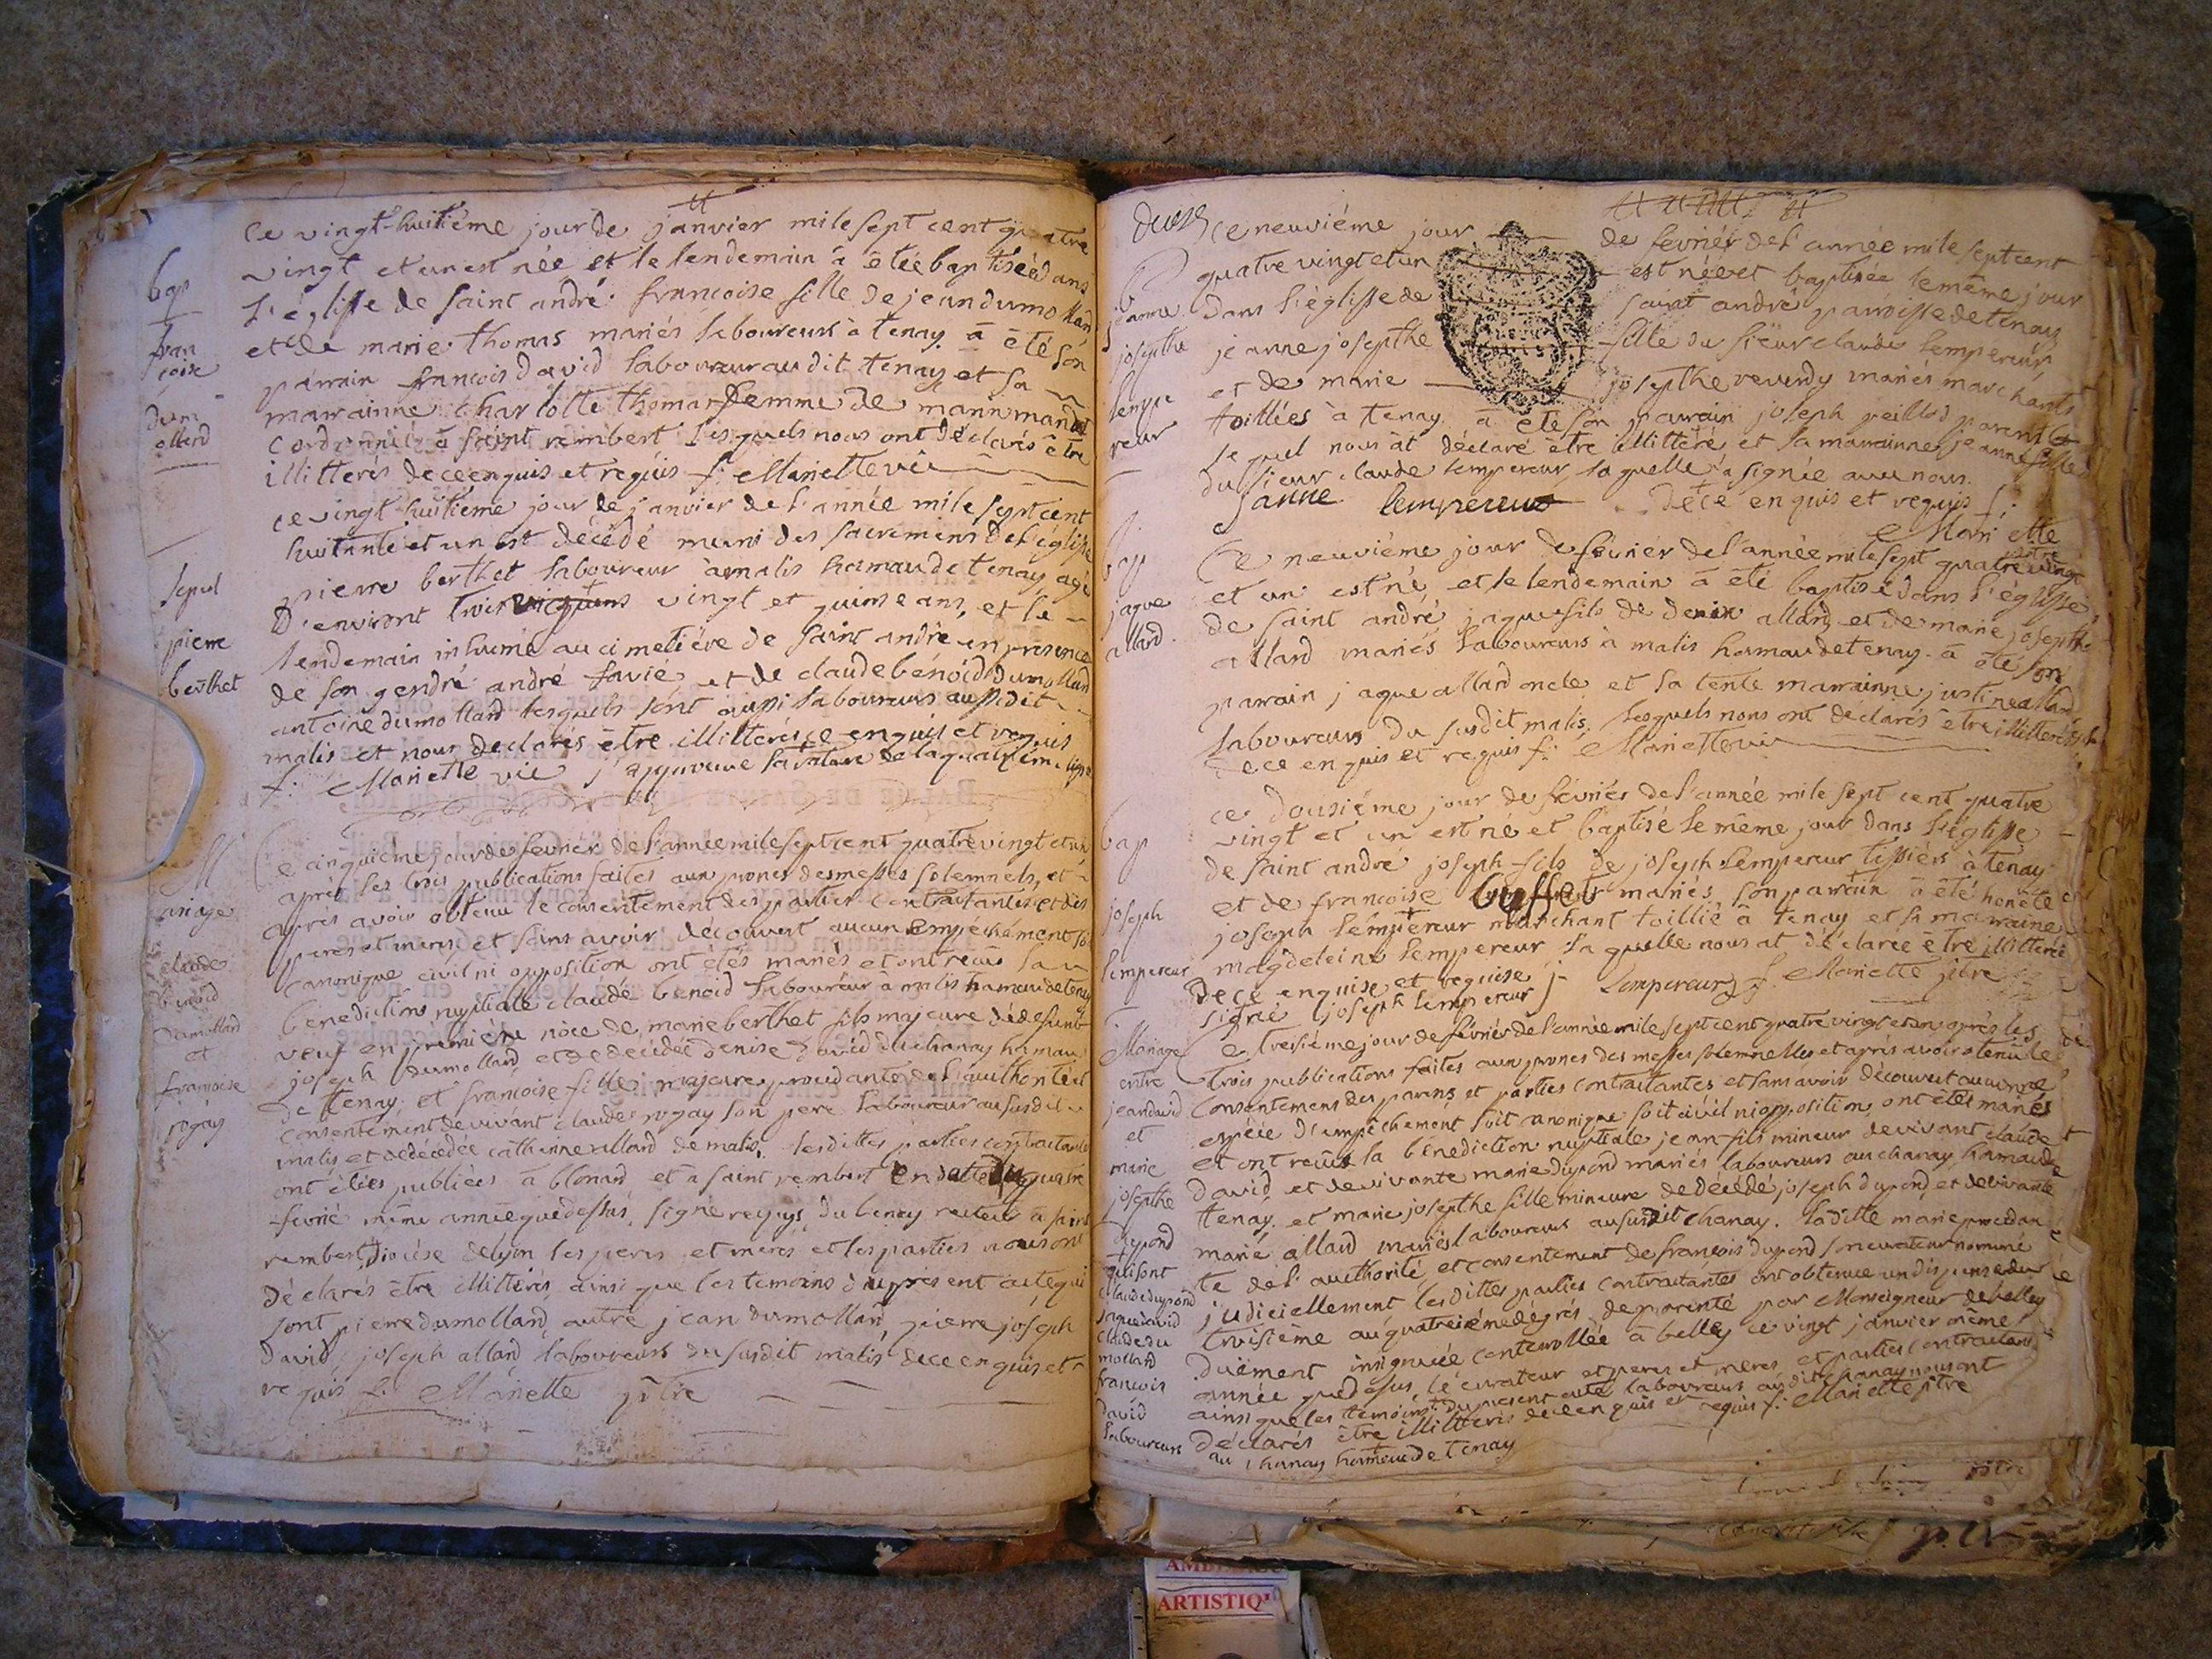 ce vingt-huitiéme jour de janvier mile sept cent quatre
vingt et un est née et le lendemain à êtée baptisée dans
l'églisse de saint andré francoise fille de jean dumollard
et de marie thomas mariés laboureurs à tenay à été son
parrain francois david laboureur audit tenay et sa
marrainne charlotte thomas femme de
cordonnié à saint rembert lesquels nous ont déclarés être
illitterés de ce enquis et requis f. Mariette vic
bap
fran
coise
dum
ollard
ce vingt-huitième jour de janvier de l'année mile sept cent
huitante et un est décédé muni des sacremens de l'église
pierre berthet laboureur à malis hamau de tenay agé
D'environt trois vingt et quinse ans, et le
lendemain inhumé au cimetiére de saint andré en presence
de son gendre andré savié et de claude bénoid dumollard
antoine dumollard lesquels sont aussi laboureurs aussdit
malis et nous declarés être illitterés ce enquis et requis
f. Mariette vic j'approuve la rature de la quatriéme ligne
sepul
pierre
berthet
Ce cinquieme jour de fevrier de l'année mile sept cent quatre vingt et un
aprés les trois publications faites aux prones des messes solemnels, et
apres avoir obtenu le consentement des parties contractantes et des
peres et meres et sans avoir découvert aucun empéchément soit
canonique civil ni opposition ont étés mariés et ont recüs la
benedictions nuptialle claude benoid laboureur à malis hamau de tenay
veuf en premiere nôce de marie berthet fils majeure de defunt
joseph dumollard et de decédée denise david du chanay hamau
de tenay, et francoise fille majeure procédante de l'authorité et
consentement de vivant claude rogay son pere laboureur au susdit
malis et dedécédée catherine allard de malis, lesdittes parties contractantes
ont étées publiées à blonas et à saint rembert en datte du quatre
fevrié même année que dessus, signé recteur à saint
rembert Diocése de lyon les peres et meres et les parties nous ont
déclarés être illitterés ainsi que les temoins du present acte qui
sont pierre dumollard autre jean dumollard, pierre joseph
david, joseph allard laboureurs du susdit malis de ce enquis et
requis f. Mariette ptre
M
ariage
claude
benoid
dumollard
et
francoise
rogay
deux
ce neuviéme jour de fevriér de l'année mile sept cent
quatre vingt et un est née et baptisée le même jour
dans l'églisse de saint andre paroisse de tenay
jeanne josepthe fille du sieur claude lempereur
et de marie josepthe reverdy mariés marchants
toilliées à tenay. à été son parrain joseph peillod parent
lequel nous ât déclaré être illitteré et sa marrainne jeanne fille
du sieur claude lempereur laquelle à signée avec nous.
Janne lempereur de ce enquis et requis f.
Mariette
jeanne
josepthe
lempe
reur
Ce neuviéme jour de février de l'année mile sept quatre vingt
et un est né, et le lendemain à été baptisé dans l'églisse
de saint andré jaque fils de denix allard et de marie josepthe
allard mariés laboureurs à malis hamau de tenay à été son
parrain jaque allard oncle et sa tente marrainne justine allard
laboureurs du susdit malis, lesquels nous ont déclarés être illitterés
de ce enquis et requis f. Mariette vic
bap
jaque
allard
ce dousiéme jour de févriér de l'année mile sept cent quatre
vingt et un est né et baptisé le même jour dans l'églisse
de saint andré joseph fils de joseph lempereur tissiérs à tenay
et de francoise buffet mariés, son parrain à êté honéte
joseph lempereur marchant toillié à tenay et sa marraine
magdeleine lempereur laquelle nous at déclarée être illitterée
de ce enquise et requise j Lempereur f. Mariette ptre
signé joseph lempereur
bap
joseph
lempereur
Ce tresiéme jour de févriér de l'année mile sept cent quatre vingt et un aprés les
trois publications faites aux prones des messes solemnelles et aprés avoir obtenu le
consentement des parens et parties contractantes et sans avoir découvert aucunne
espéce d'empéchement soit canonique soit civil ni opposition, ont étés mariés
et ont recüs la bénediction nuptiale jean fils mineur de vivant claude
david et de vivante marie dupond mariés laboureurs au chanay hamau de
tenay. et marie josepthe fille mineure de décédé joseph dupond, et de vivante
marie allard mariés laboureurs au susdit chanay. laditte marie procédan
te de l'authorité et consentement de françois dupond son curateur nommé
judiciellement lesdittes parties contractantes ont obtenue un dispense du
troisiéme au quatreiéme dégrés de parenté par Monseigneur de belley
duëment insignuée conterollée à belley ce vingt janvier même
année que desus, le curateur et peres et meres, et parties contractan
ainsi que les témoins du present acte laboureurs audit chanay nous ont
déclarés être illitterés de ce enquis et requis f. Mariette ptre
au chanay hameau de tenay
Mariage
entre
jean david
et
marie
josepthe
dupond
qui sont
claude dupond
jaque david
claude du
mollard
francois
david
laboureurs
ARTISTIQ